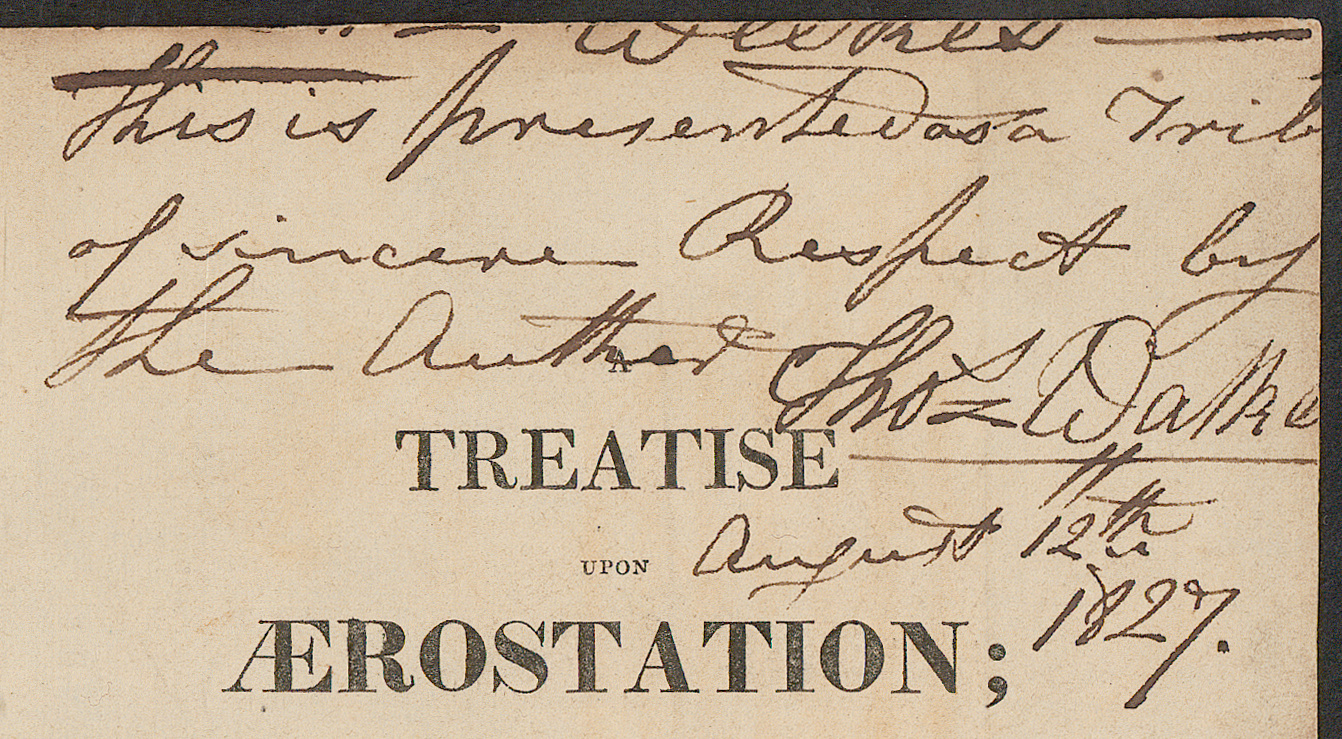 Weekes
this is presented as a Trib
of sincere Respect by
the Author Thos Walke
A
TREATISE
August 12th
UPON
1827.
ÆROSTATION;